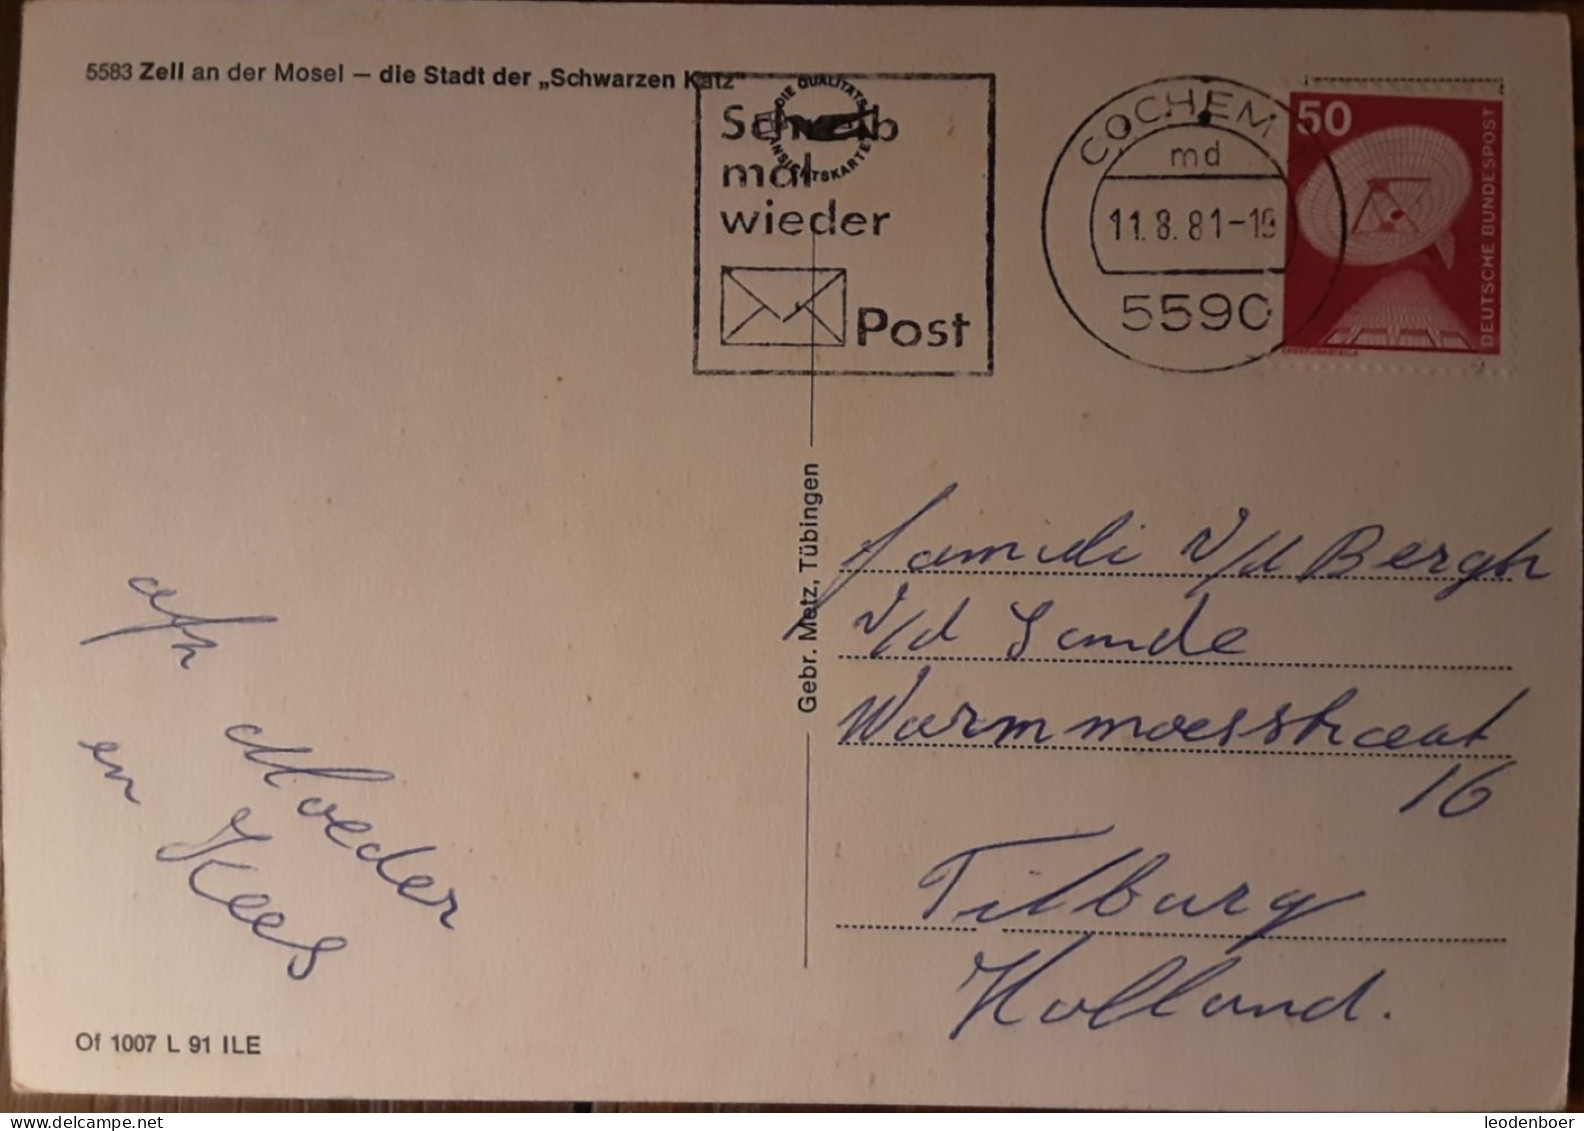 5583 Zell an der Mosel – die Stadt der „Schwarzen Katz"
DIE QUALITÄTS
ANSICHTSKARTE
Schreib
mal
wieder
Post
COCHEM
md
11.8.81-19
5590
50
DEUTSCHE BUNDESPOST
ERDEFUNKSTELLE
Gebr. Metz, Tübingen
Familie v/d Bergh
v/d Sande
Warmmoesstraat
16
Tilburg
Holland.
afz
Moeder
en Kees
Of 1007 L 91 ILE
leodenboer